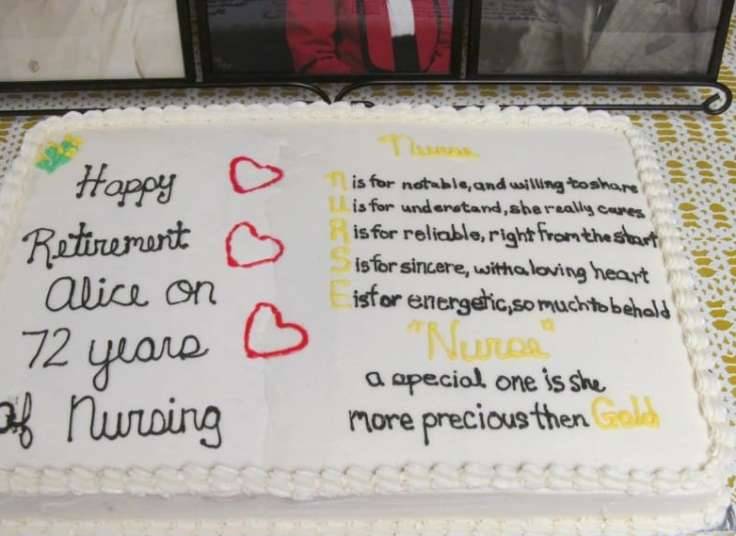 Happy
Retirement
Alice on
72 years
of Nursing
Nurse
n is for notable, and willing to share
U is for understand, she really cares
R is for reliable, right from the start
S is for sincere, with a loving heart
E is for energetic, so much to behold
"Nurse"
a special one is she
more precious then Gold